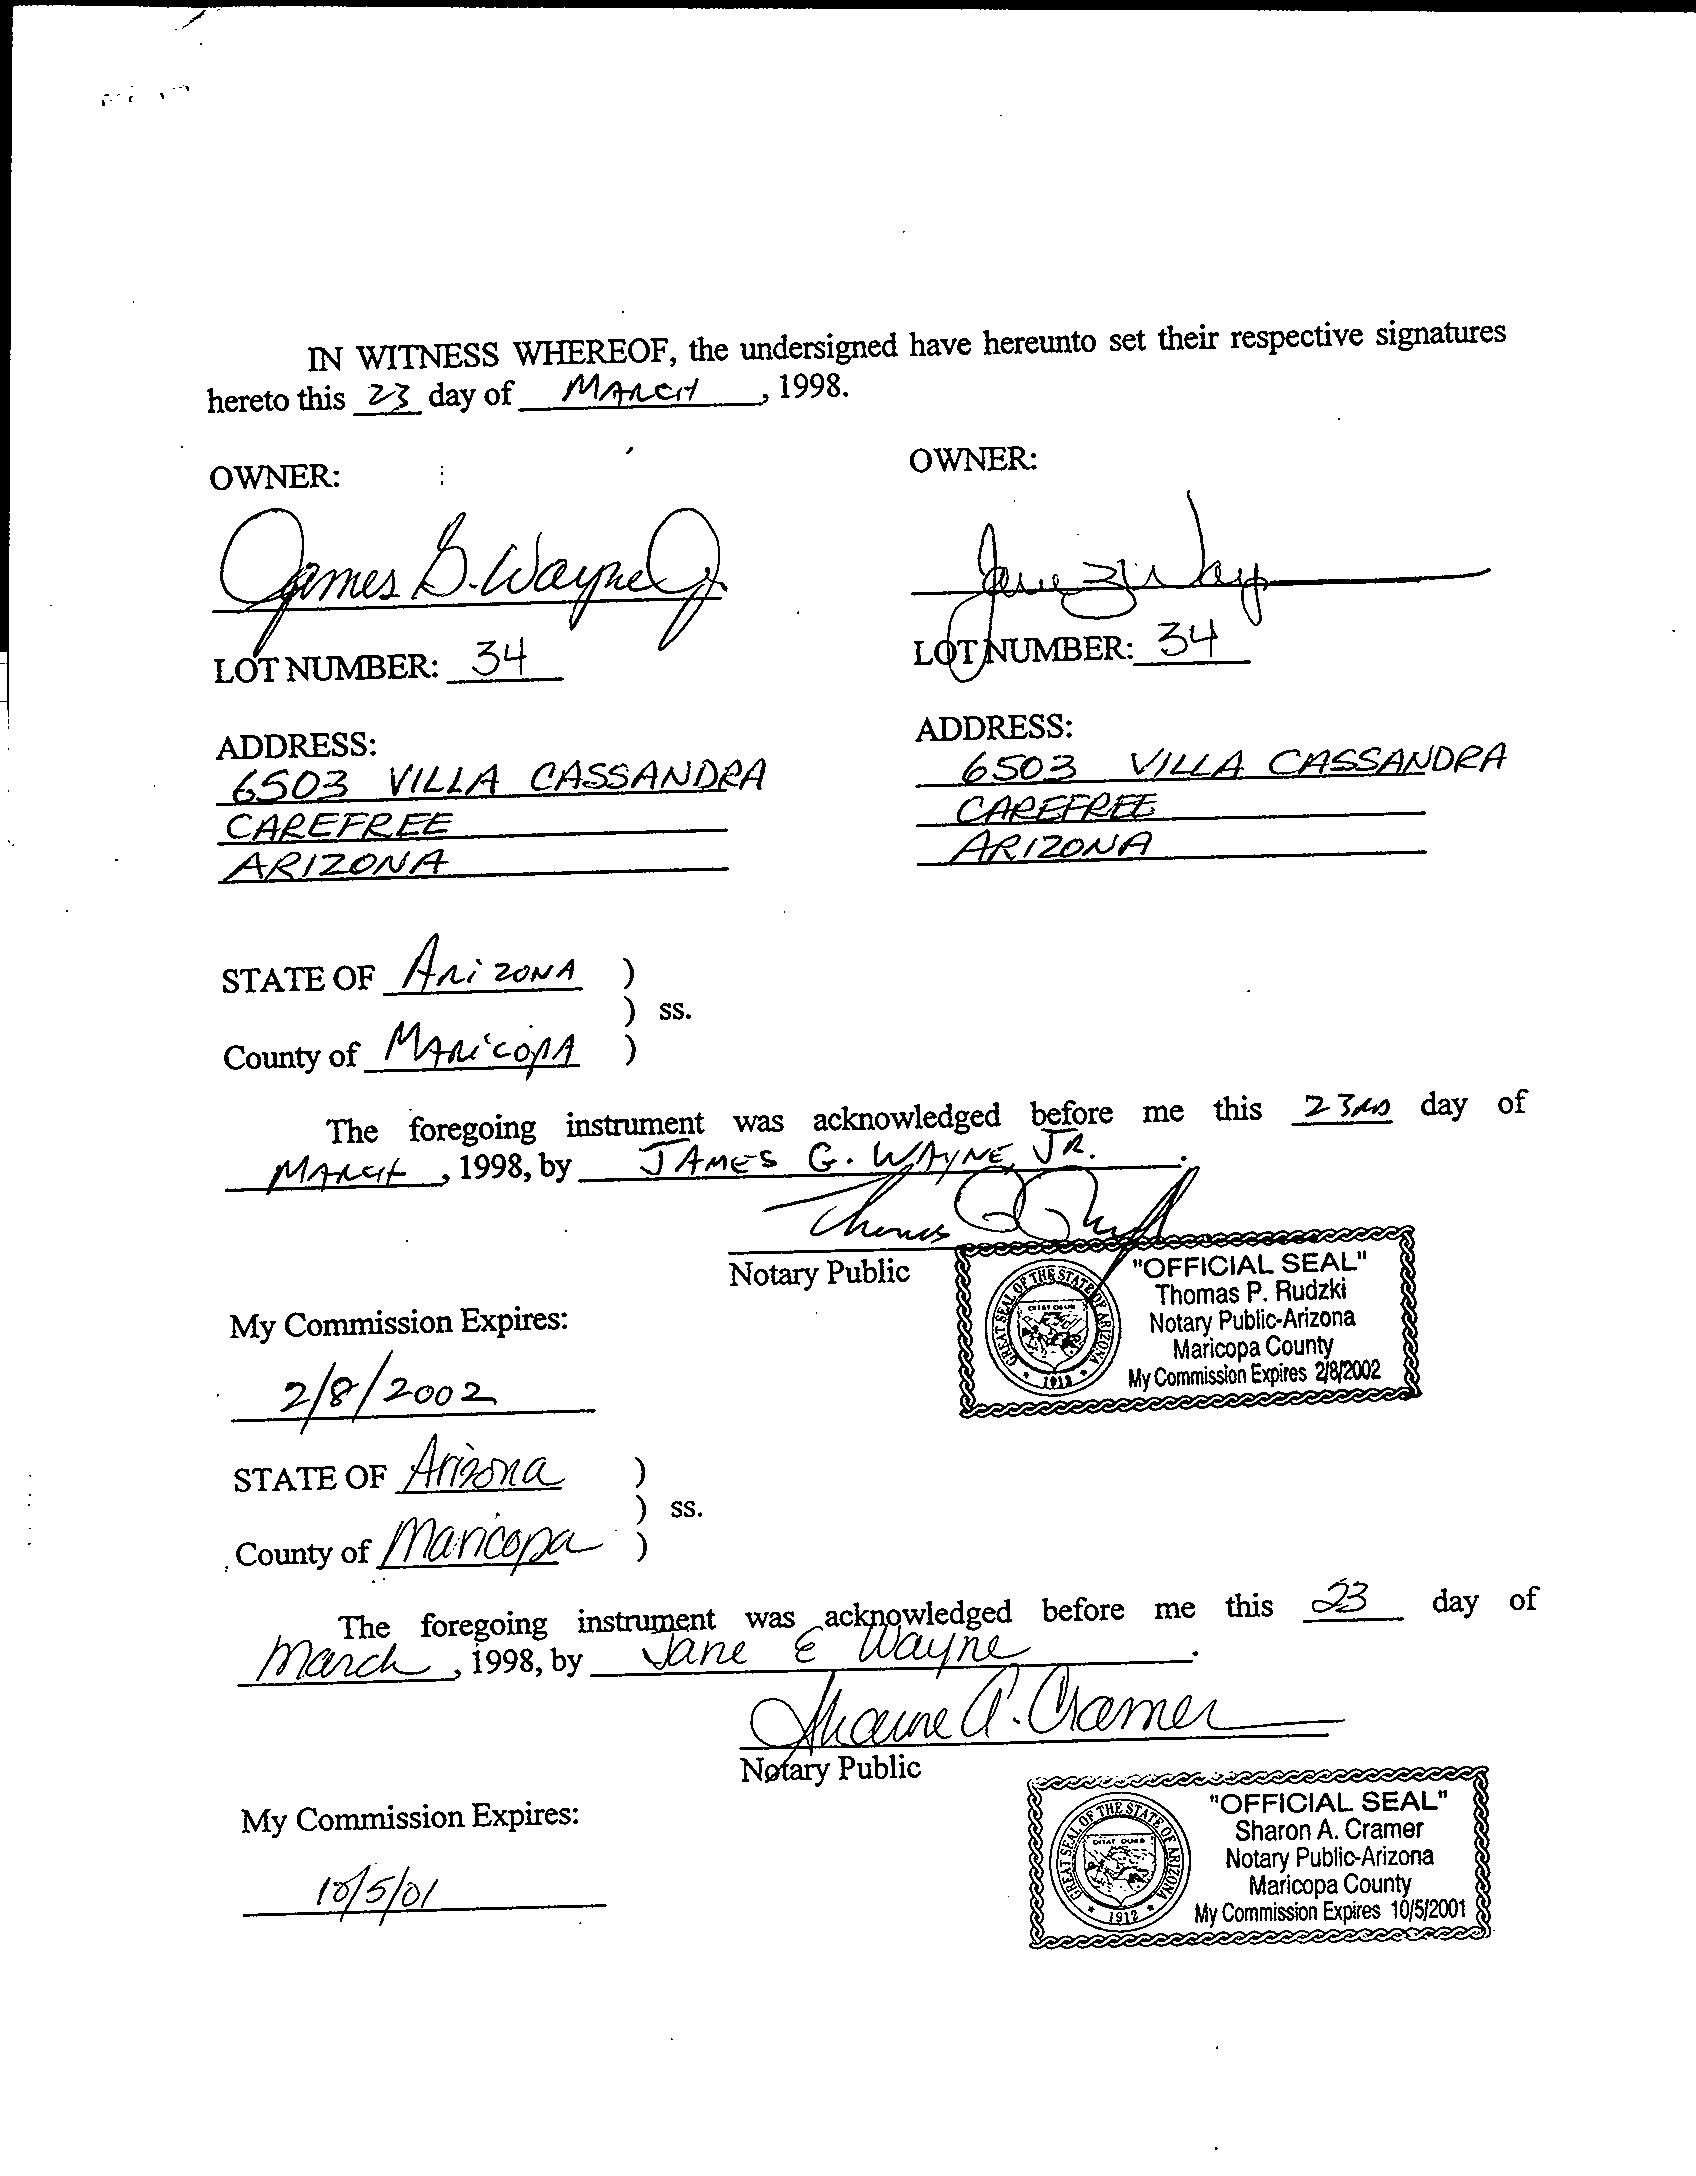 IN WITNESS WHEREOF, the undersigned have hereunto set their respective signatures
hereto this 23 day of MARCH, 1998.
OWNER:
James G. Wayne Jr.
LOT NUMBER: 34
ADDRESS:
6503 VILLA CASSANDRA
CAREFREE
ARIZONA
OWNER:
Jane
LOT NUMBER: 34
ADDRESS:
6503 VILLA CASSANDRA
CAREFREE
ARIZONA
STATE OF ARIZONA )
) ss.
County of MARICOPA )
The foregoing instrument was acknowledged before me this 23RD day of
MARCH, 1998, by JAMES G. WAYNE, JR.
Thomas P.
Notary Public
"OFFICIAL SEAL"
Thomas P. Rudzki
Notary Public-Arizona
Maricopa County
My Commission Expires 2/8/2002
GREAT SEAL OF THE STATE OF ARIZONA
1912
My Commission Expires:
2/8/2002
STATE OF Arizona )
) ss.
County of Maricopa )
The foregoing instrument was acknowledged before me this 23 day of
March, 1998, by Jane E Wayne.
A. Cramer
Notary Public
"OFFICIAL SEAL"
Sharon A. Cramer
Notary Public-Arizona
Maricopa County
My Commission Expires 10/5/2001
GREAT SEAL OF THE STATE OF ARIZONA
1912
My Commission Expires:
10/5/01